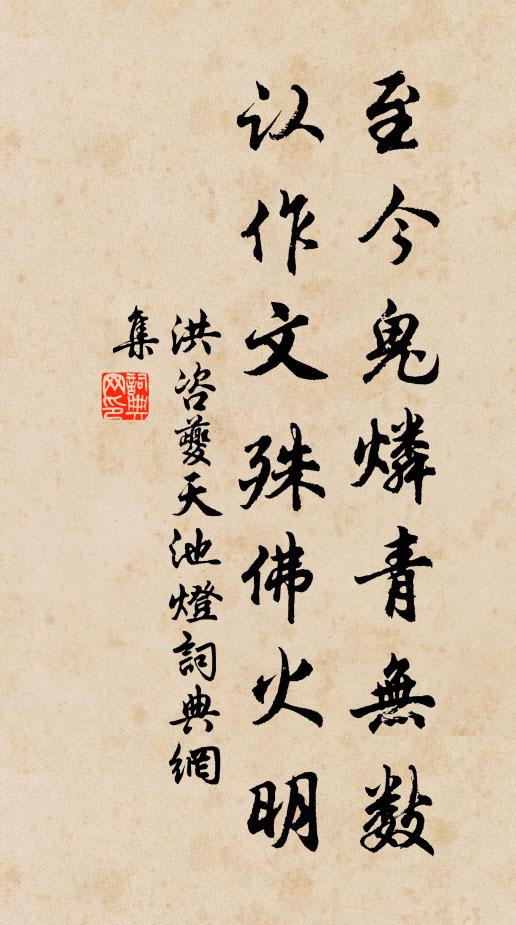 至今鬼燐青無数
认作文殊佛火明
洪咨夔天池燈詞典網
集
詞典网印